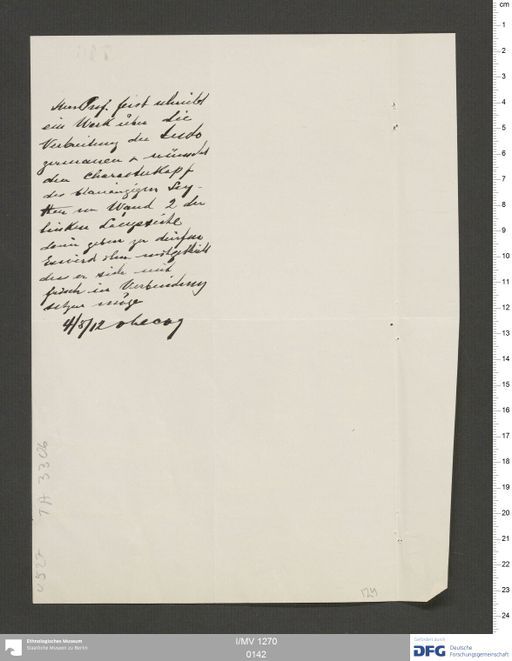 Herr Prof. Feist schreibt
ein Werk über die
Verbreitung der Indo
germanen & wünscht
den Charakterkopf
des blauäugigen Sky-
then von Wand 2 der
linken Längsseite
darin geben zu dürfen
Es wird ihm mitgetheilt
dass er sich mit
Frisch in Verbindung
setzen möge
4/8/12
TA 3306
125
cm
1
2
3
4
5
6
7
8
9
10
11
12
13
14
15
16
17
18
19
20
21
22
23
24
Ethnologisches Museum
Staatliche Museen zu Berlin
I/MV 1270
0142
Gefördert durch
DFG Deutsche
Forschungsgemeinschaft